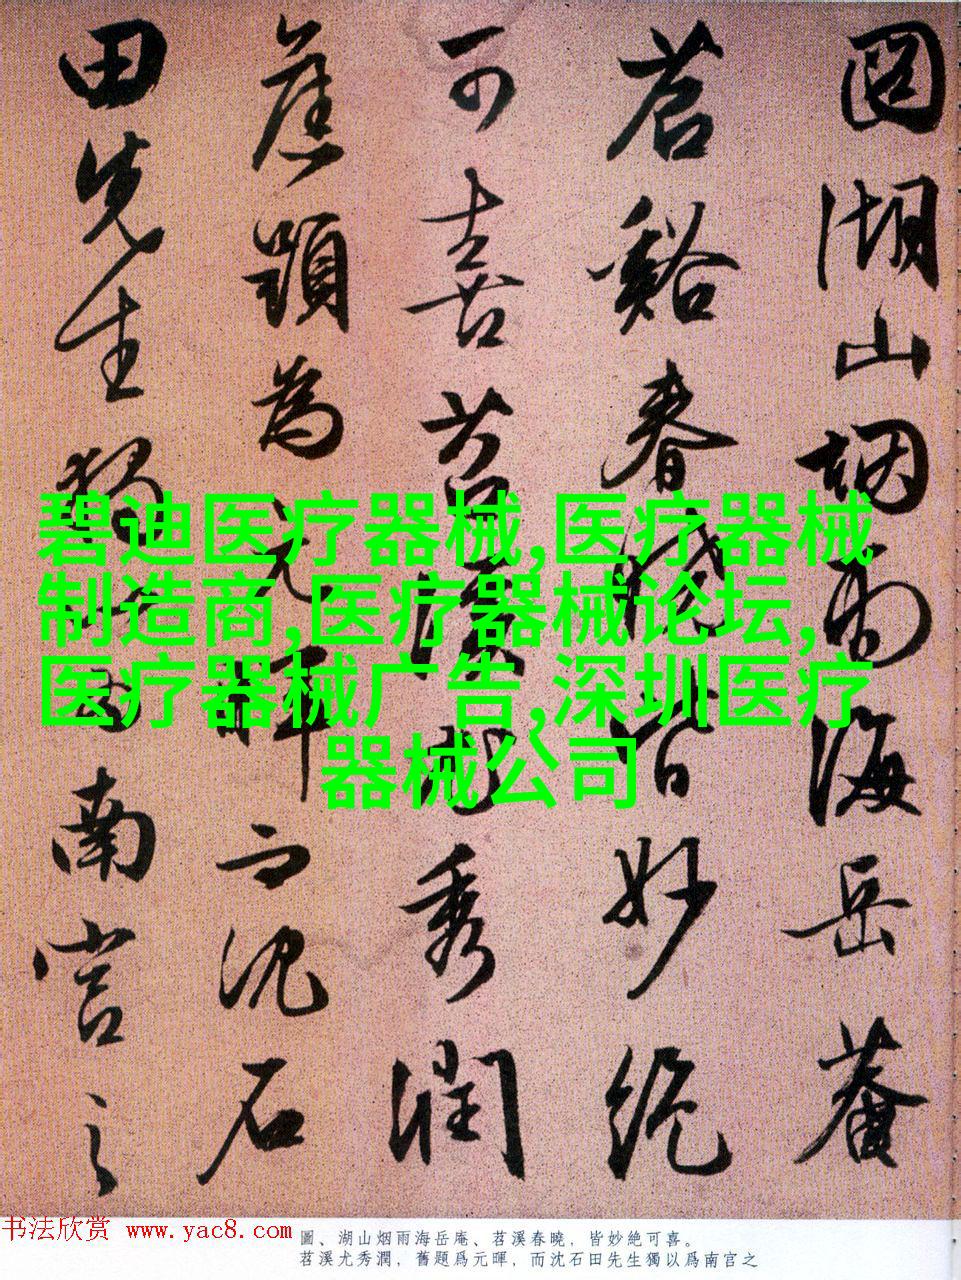 圖湖山烟雨海岳菴
苕谿春曉皆妙絶
可喜苕溪尤秀潤
舊題為元暉而沈石
田先生獨以為南宫之
碧迪医疗器械,医疗器械
制造商,医疗器械论坛,
医疗器械广告,深圳医疗
器械公司
书法欣赏 www.yac8.com
圖、湖山烟雨海岳庵、苕溪春曉，皆妙絶可喜。
苕溪尤秀潤，舊題爲元暉，而沈石田先生獨以爲南宫之